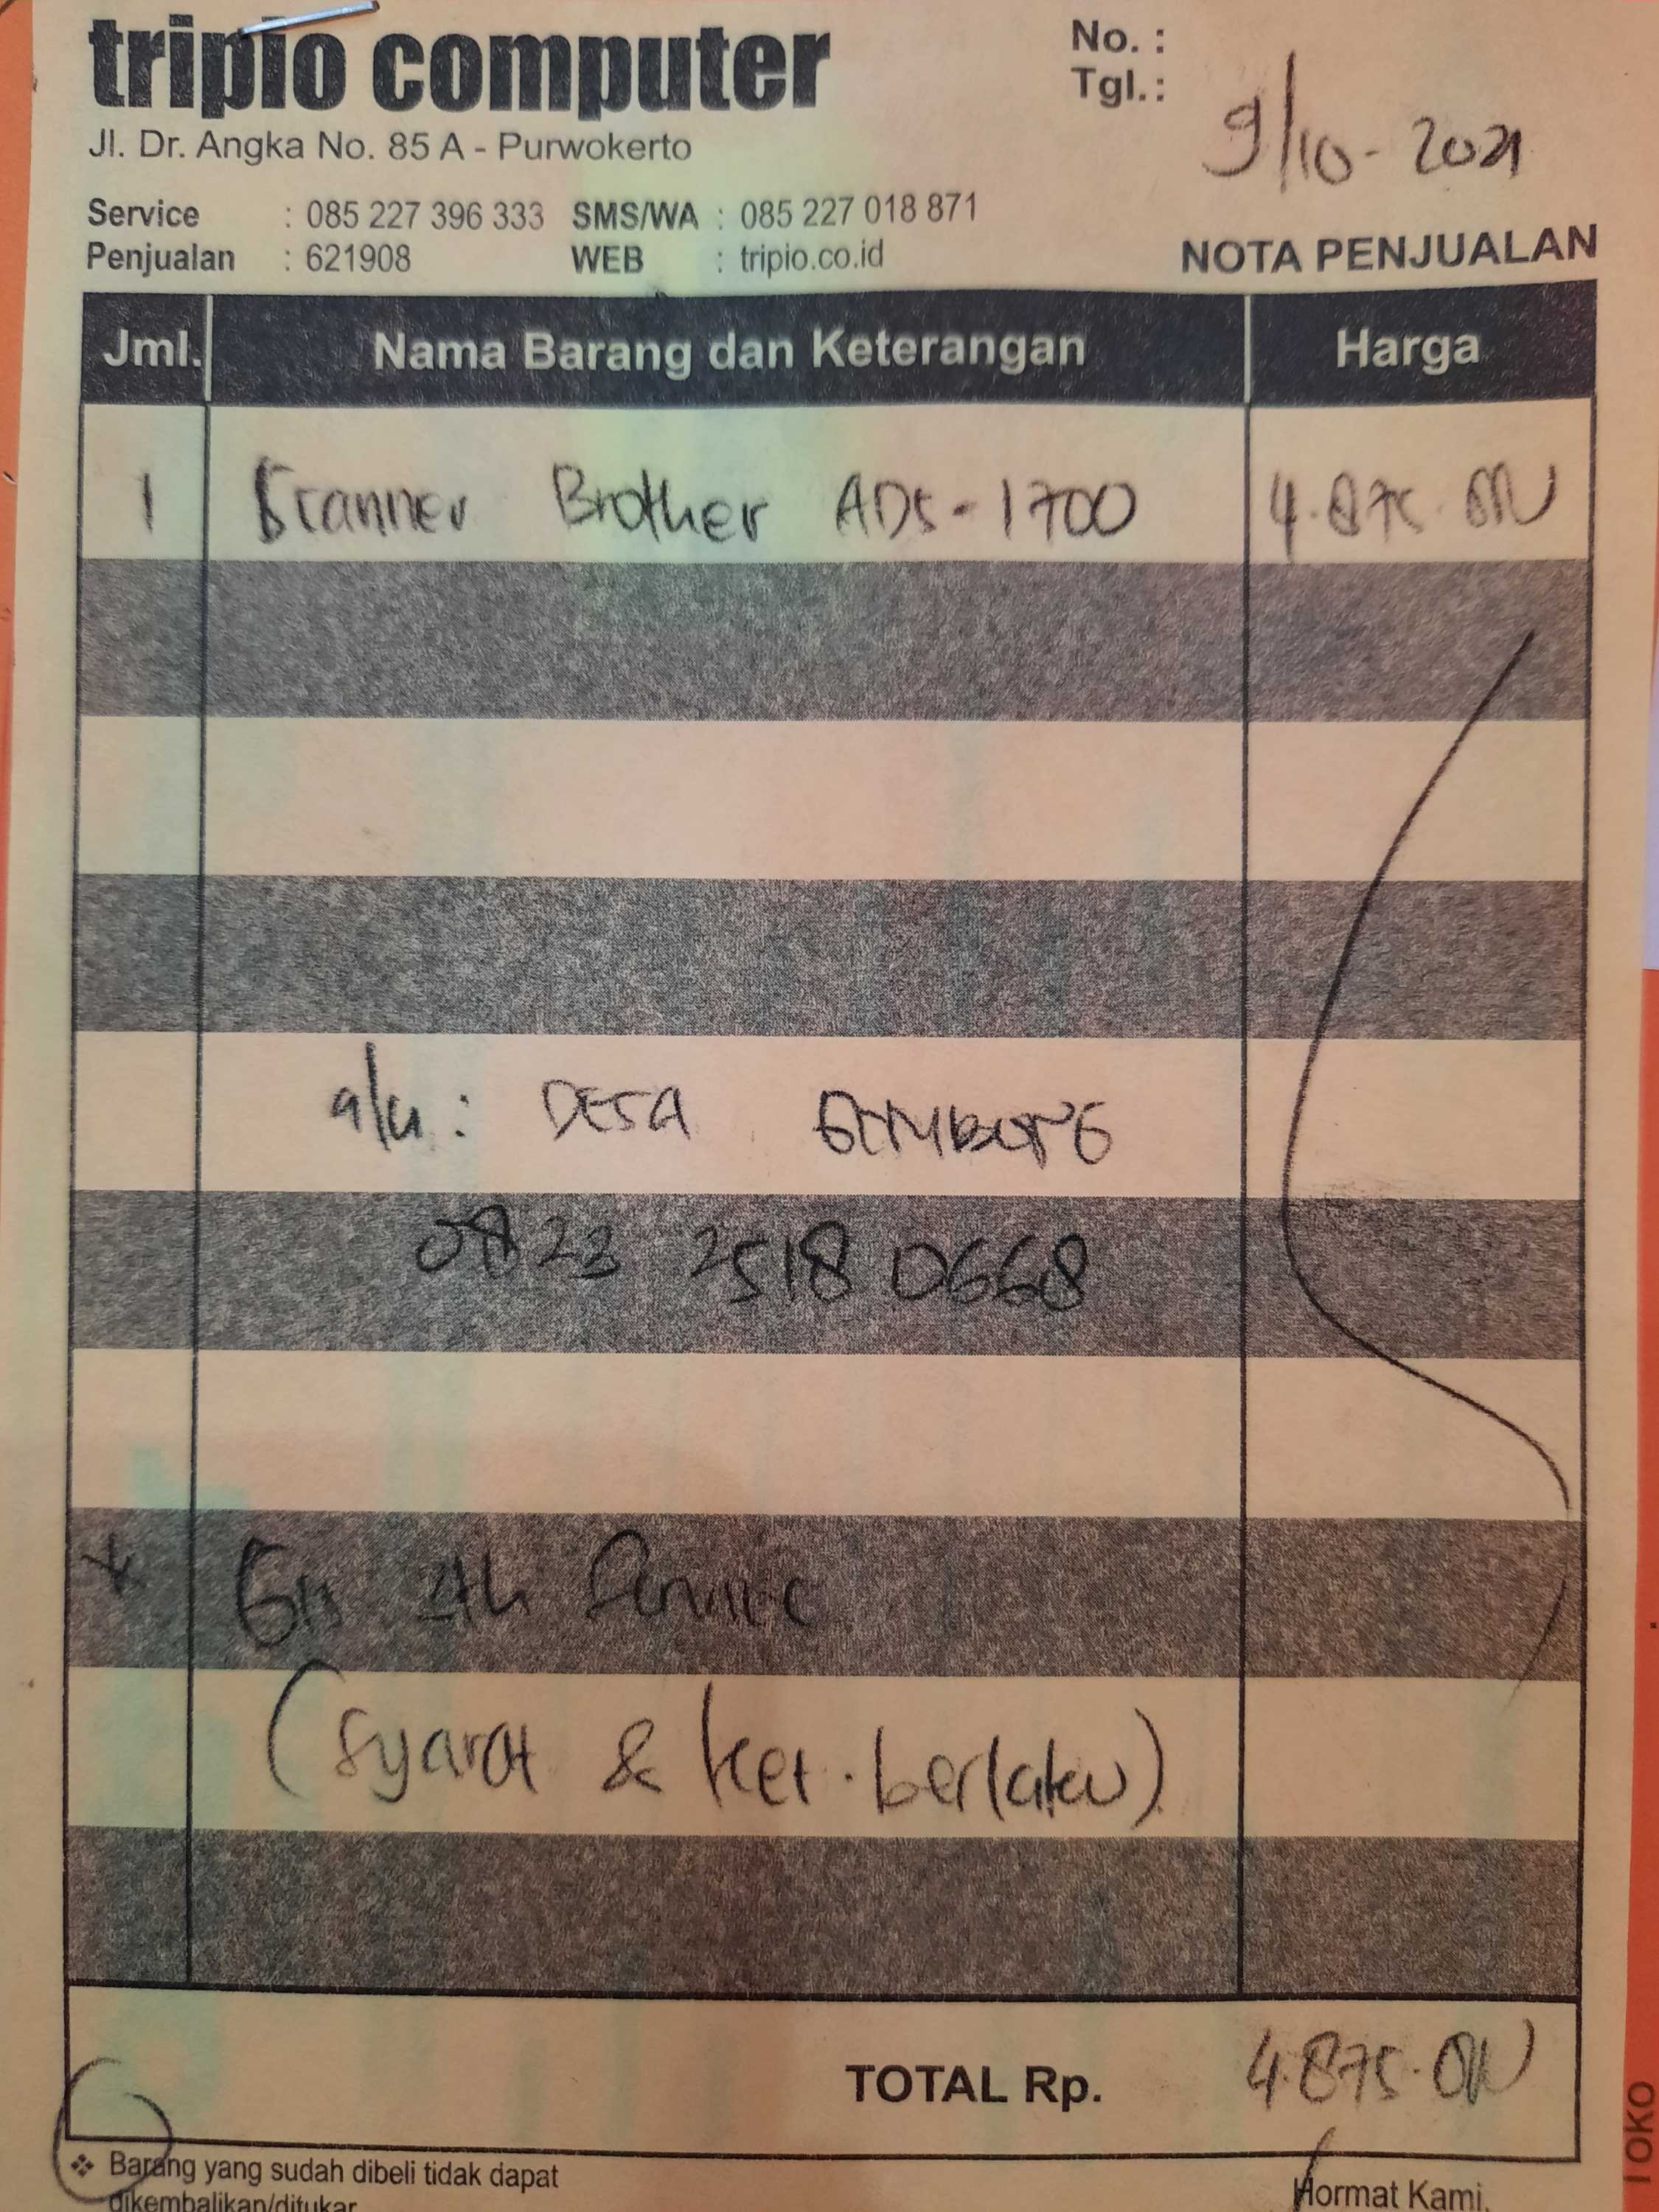 tripio computer
Jl. Dr. Angka No. 85 A - Purwokerto
Service : 085 227 396 333 SMS/WA : 085 227 018 871
Penjualan : 621908 WEB : tripio.co.id
No. :
Tgl. : 9/10-2021
NOTA PENJUALAN
Jml. Nama Barang dan Keterangan Harga
1 Scanner Brother ADS-1700 4.875.000
a/n : DESA
0823 2518 0668
* Grs 2th Service
(Syarat & ket. berlaku)
TOTAL Rp. 4.875.000
❖ Barang yang sudah dibeli tidak dapat
dikembalikan/ditukar
Hormat Kami,
TOKO